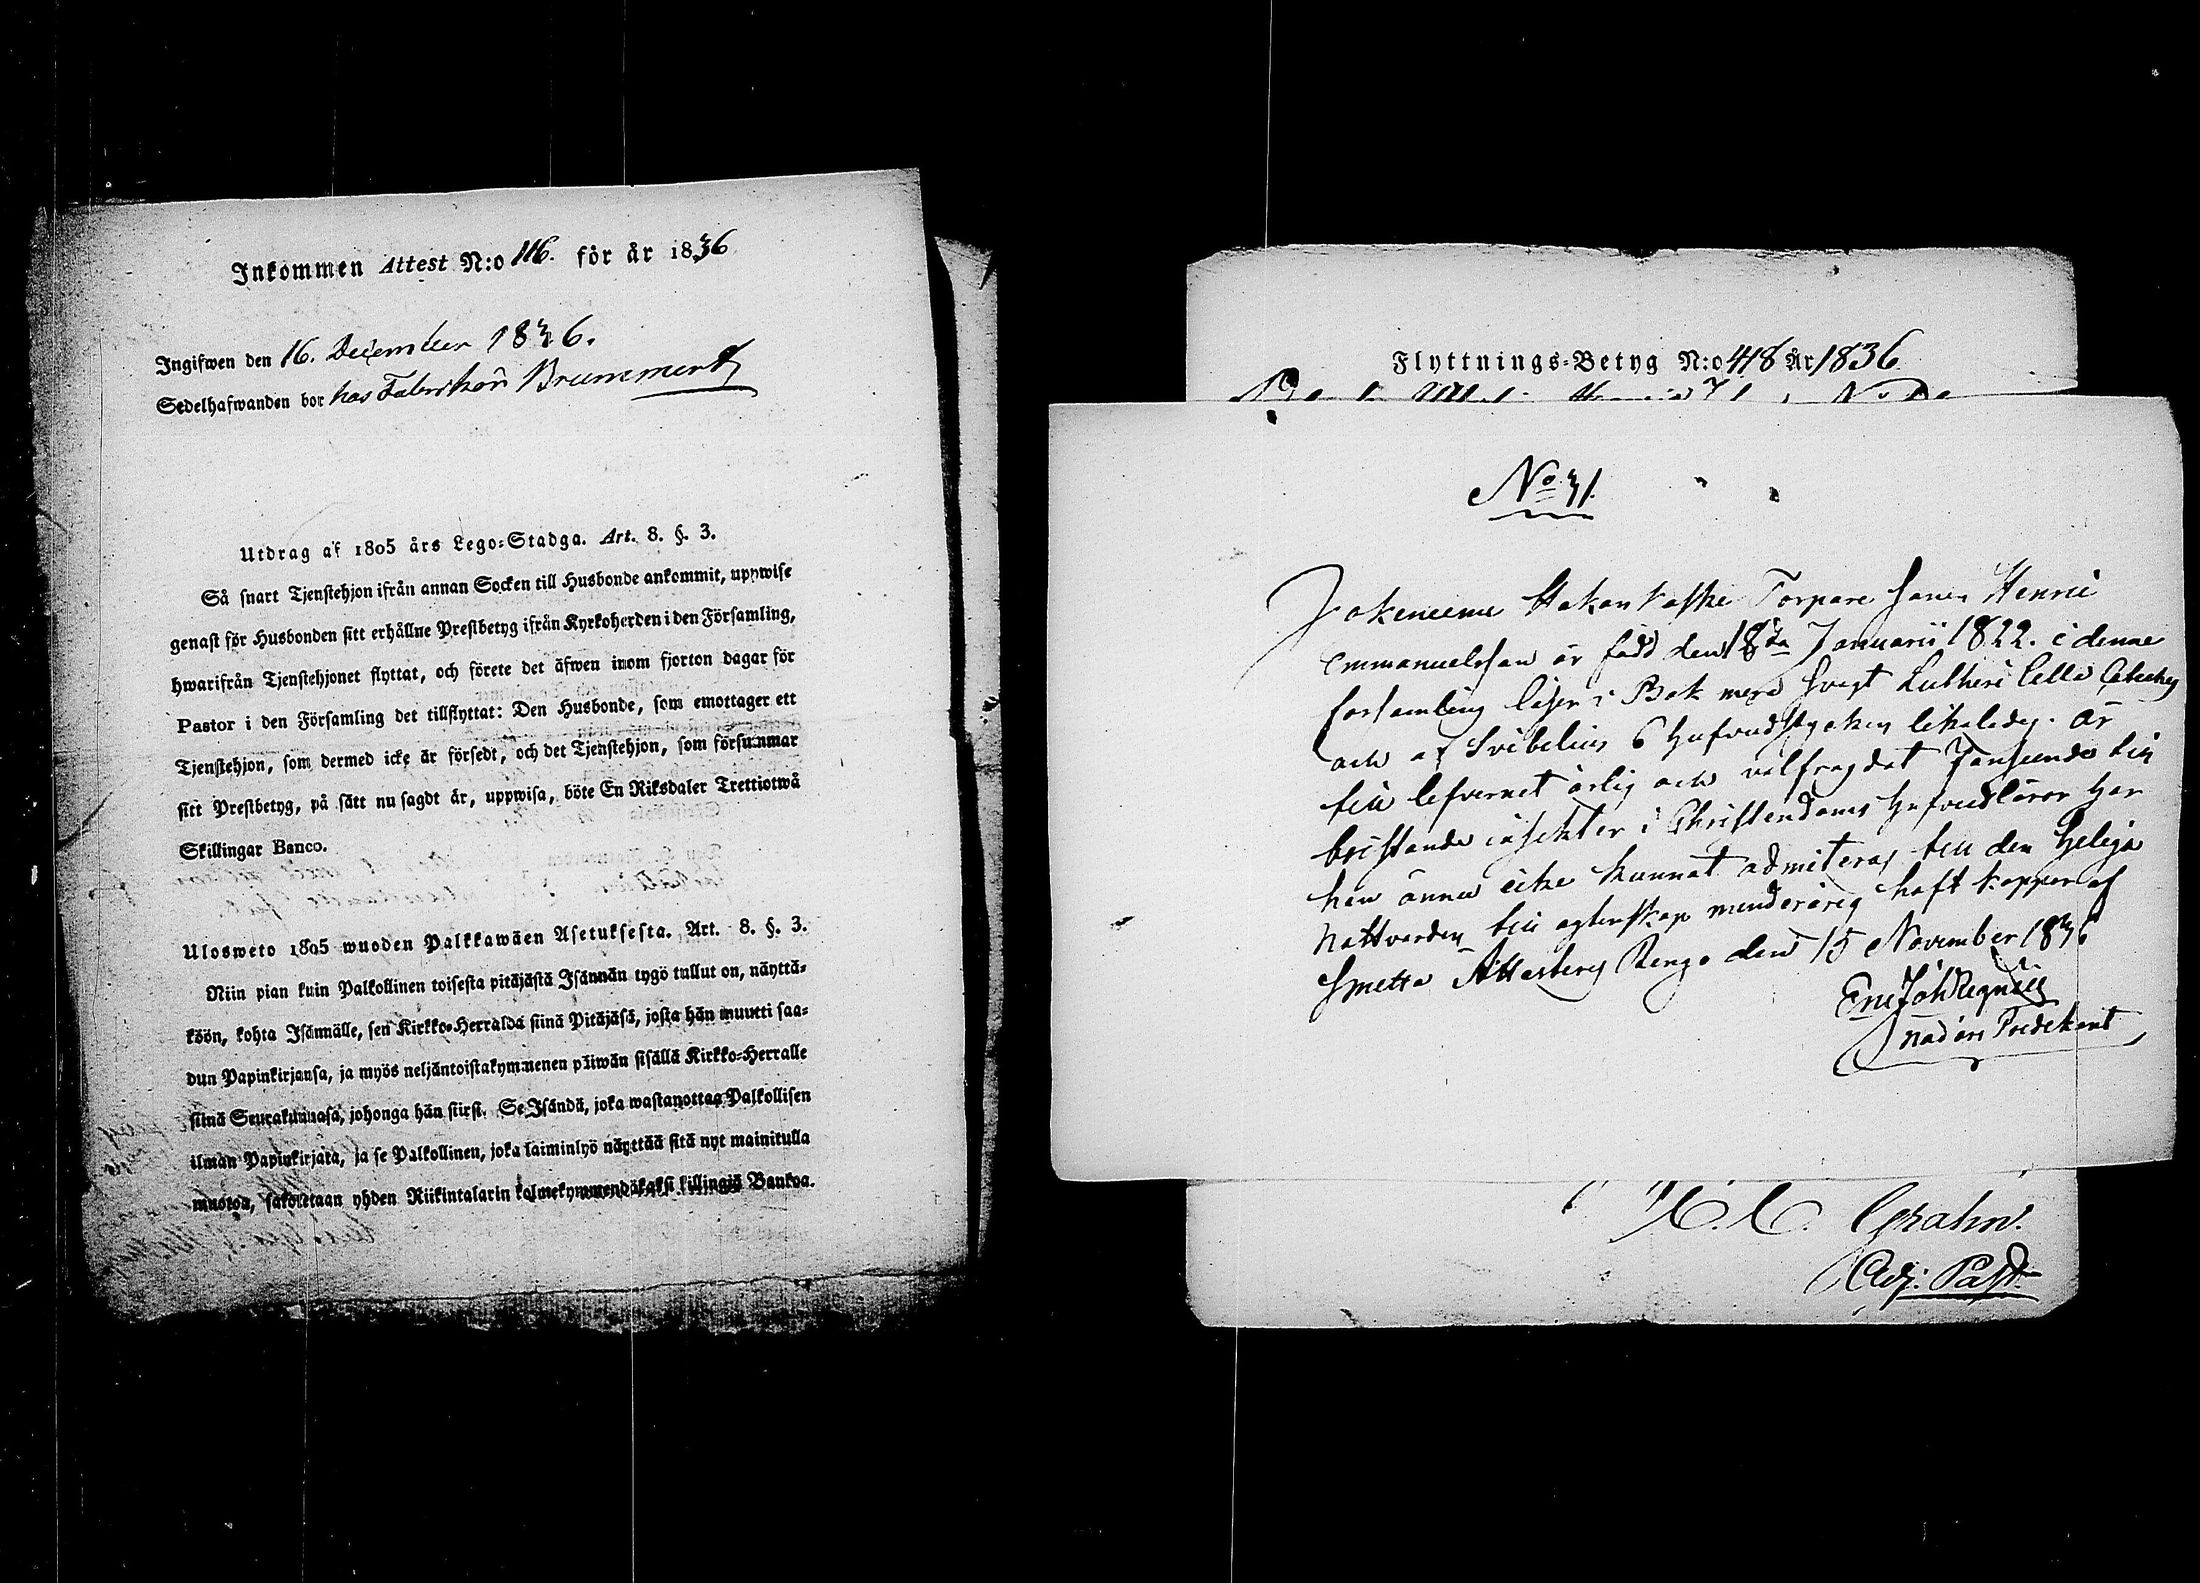 Inkommen Attest N:o 116. för år 1836
Ingifwen den 16. December 1836.
Sedelhafwanden bor hos Fabrikör Brummert
Utdrag af 1805 års Lego-Stadga. Art. 8. §. 3.
Så snart Tjenstehjon ifrån annan Socken till Husbonde ankommit, uppwise
genast för Husbonden sitt erhållne Prestbetyg ifrån Kyrkoherden i den Församling,
hwarifrån Tjenstehjonet flyttat, och förete det äfwen inom fjorton dagar för
Pastor i den Församling det tillflyttat: Den Husbonde, som emottager ett
Tjenstehjon, som dermed icke är försedt, och det Tjenstehjon, som försummar
sitt Prestbetyg, på sätt nu sagdt är, uppwisa, böte En Riksdaler Trettiotwå
Skillingar Banco.
Ulosweto 1805 wuoden Palkkawäen Asetuksesta. Art. 8. §. 3.
Niin pian kuin Palkollinen toisesta pitäjästä Isännän tygö tullut on, näyttä-
köön, kohta Isännälle, sen Kirkko-Herralda siinä Pitäjäsä, josta hän muutti saa-
dun Papinkirjansa, ja myös neljäntoistakymmenen päiwän sisällä Kirkko-Herralle
siinä Seurakunnasa, johonga hän siirsi. Se Isändä, joka wastanottaa Palkollisen
ilman Papinkirjata, ja se Palkollinen, joka laiminlyö näyttää sitä nyt mainitulla
muotoa, sakotetaan yhden Riikintalarin kolmekymmendäkaksi killingiä Bankoa.
Flyttnings-Betyg N:o 418 År 1836
No 31.
Torpare Sonen Henric
Emmanuelsson är född den 18da Januarii 1822. i denna
församling läser i Bok med Svagt Lutheri Lilla Cateches
och af Svebelius 6 Hufvudstycken likaledes. är
till lefvernet ärlig och välfrägdat
bristande insikter i Christendoms hufvudläror har
han ännu icke kunnat admitteras till den Heliga
Nattvarden till ägtenskap minderårig haft koppor af
Smetta Attesterar Rengo den 15 November 1836
Eric Joh Regnell
Nådårs Predikant
C. Grahn.
Adj. Past.